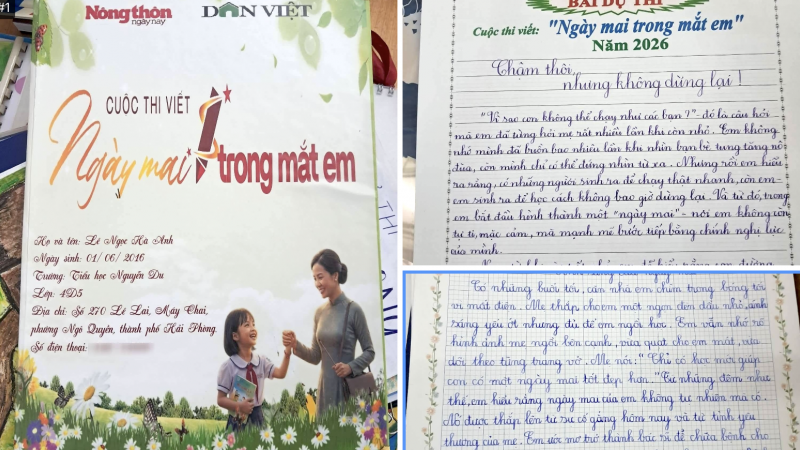 #1
Nông thôn
ngày nay
DÂN VIỆT
CUỘC THI VIẾT
Ngày mai trong mắt em
Họ và tên: Lê Ngọc Hà Anh
Ngày sinh: 01/06/2016
Trường: Tiểu học Nguyễn Du
Lớp: 4D5
Địa chỉ: Số 270 Lê Lai, Máy Chai,
phường Ngô Quyền, thành phố Hải Phòng.
Số điện thoại:
BÀI DỰ THI
Cuộc thi viết: "Ngày mai trong mắt em"
Năm 2026
Chậm thôi,
nhưng không dừng lại!
"Vì sao con không thể chạy như các bạn?" - đó là câu hỏi
mà em đã từng hỏi mẹ rất nhiều lần khi còn nhỏ. Em không
nhớ mình đã buồn bao nhiêu lần khi nhìn bạn bè tung tăng nô
đùa, còn mình chỉ có thể đứng nhìn từ xa. Nhưng rồi em hiểu
ra rằng, có những người sinh ra để chạy thật nhanh, còn em-
em sinh ra để học cách không bao giờ dừng lại. Và từ đó, trong
em bắt đầu hình thành một "ngày mai" - nơi em không còn
tự ti, mặc cảm, mà mạnh mẽ bước tiếp bằng chính nghị lực
của mình.
Có những buổi tối, căn nhà em chìm trong bóng tối
vì mất điện. Mẹ thắp cho em một ngọn đèn dầu nhỏ, ánh
sáng yếu ớt nhưng đủ để em ngồi học. Em vẫn nhớ rõ
hình ảnh mẹ ngồi bên cạnh, vừa quạt cho em mát, vừa
dõi theo từng trang vở. Mẹ nói: "Chỉ có học mới giúp
con có một ngày mai tốt đẹp hơn." Từ những đêm như
thế, em hiểu rằng ngày mai của em không tự nhiên mà có.
Nó được thắp lên từ sự cố gắng hôm nay và từ tình yêu
thương của mẹ. Em ước mơ trở thành bác sĩ để chữa bệnh cho